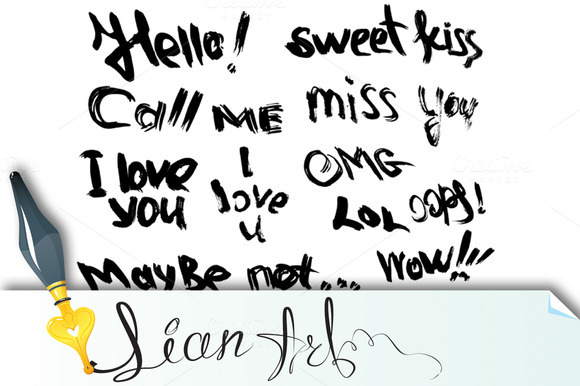 Hello! sweet kiss
Call ME miss you
I love you
I love u
OMG
LOL oops!
MayBe not... wow!!!
Lian Art